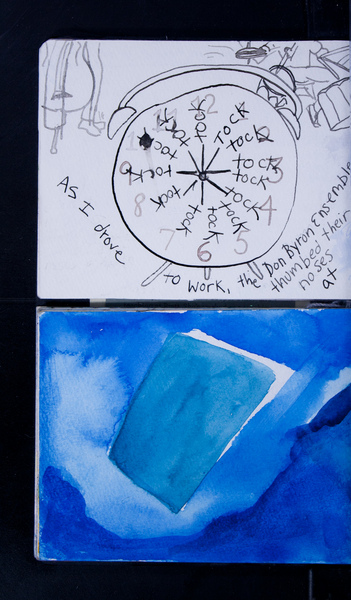 tock
TOCK
tock
tock
tock
tock
tock
tock
tock
tock
tock
tock
tock
2
3
4
5
6
7
8
9
As I drove
to work, the Don Byron Ensemble
thumbed their
noses
at